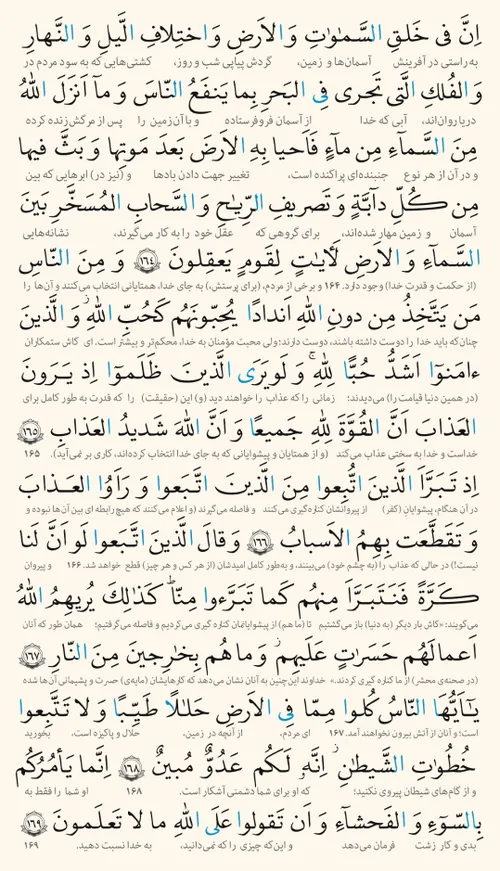 اِنَّ فی خَلقِ السَّمٰوٰتِ وَ الاَرضِ وَ اختِلافِ الَّیلِ وَ النَّهارِ
به‌راستی در آفرینش آسمان‌ها و زمین، گردش پیاپی شب و روز، کشتی‌هایی که به سود مردم در
وَ الفُلكِ الَّتی تَجری فِی البَحرِ بِما یَنفَعُ النّاسَ وَ مآ اَنزَلَ اللهُ
دریا روان‌اند، آبی که خدا از آسمان فروفرستاده و با آن زمین را پس از مرگش زنده کرده
مِنَ السَّمآءِ مِن مآءٍ فَاَحیا بِهِ الاَرضَ بَعدَ مَوتِها وَ بَثَّ فیها
و در آن از هر نوع جنبنده‌ای پراکنده است، تغییر جهت دادن بادها و (نیز در) ابرهایی که بین
مِن کُلِّ دآبَّةٍ وَ تَصریفِ الرِّیٰحِ وَ السَّحابِ المُسَخَّرِ بَینَ
آسمان و زمین مهار شده‌اند، برای گروهی که عقل خود را به کار می‌گیرند، نشانه‌هایی
السَّمآءِ وَ الاَرضِ لَأٓیٰتٍ لِقَومٍ یَعقِلونَ ﴿١٦٤﴾ وَ مِنَ النّاسِ
(از حکمت و قدرت خدا) وجود دارد. ۱۶۴ و برخی از مردم، (برای پرستش،) به جای خدا، همتایانی انتخاب می‌کنند و آن‌ها را
مَن یَتَّخِذُ مِن دونِ اللهِ اَندادًا یُحِبّونَهُم کَحُبِّ اللهِ وَ الَّذینَ
چنان‌که باید خدا را دوست داشته باشند، دوست دارند؛ ولی محبت مؤمنان به خدا، محکم‌تر و بیشتر است. ای کاش ستمکاران
ءامَنوٓا اَشَدُّ حُبًّا لِلّٰهِ وَ لَو یَرَی الَّذینَ ظَلَموٓا اِذ یَرَونَ
(در همین دنیا قیامت را) می‌دیدند؛ زمانی را که عذاب را خواهند دید (و) این (حقیقت) را که قدرت به طور کامل برای
العَذابَ اَنَّ القُوَّةَ لِلّٰهِ جَمیعًا وَ اَنَّ اللهَ شَدیدُ العَذابِ ﴿١٦٥﴾
خداست و خدا به سختی عذاب می‌کند (و از همتایان و پیشوایانی که به جای خدا انتخاب کرده‌اند، کاری بر نمی‌آید). ۱۶۵
اِذ تَبَرَّاَ الَّذینَ اتُّبِعوا مِنَ الَّذینَ اتَّبَعوا وَ رَاَوُا العَذابَ
در آن هنگام، پیشوایانِ (کفر) از پیروانشان کناره‌گیری می‌کنند و فاصله می‌گیرند (و اعلام می‌کنند که هیچ رابطه‌ای بین آن‌ها نبوده و
وَ تَقَطَّعَت بِهِمُ الاَسبابُ ﴿١٦٦﴾ وَ قالَ الَّذینَ اتَّبَعوا لَو اَنَّ لَنا
نیست!) در حالی که عذاب را (به چشم خود) می‌بینند، و به‌طور کامل امیدشان (از هر کس و هر چیز) قطع خواهد شد. ۱۶۶ و پیروان
کَرَّةً فَنَتَبَرَّاَ مِنهُم کَما تَبَرَّءوا مِنّا کَذٰلِكَ یُریهِمُ اللهُ
می‌گویند: «کاش بار دیگر (به دنیا) باز می‌گشتیم تا (ما هم) از پیشوایانمان کناره گیری می‌کردیم و فاصله می‌گرفتیم؛ همان طور که آنان
اَعمالَهُم حَسَرٰتٍ عَلَیهِم وَ ما هُم بِخٰرِجینَ مِنَ النّارِ ﴿١٦٧﴾
(در صحنه‌ی محشر) از ما کناره گیری کردند.» خداوند این‌چنین به آنان نشان می‌دهد که کارهایشان (مایه‌ی) حسرت و پشیمانی آن‌ها شده
یٰٓاَیُّهَا النّاسُ کُلوا مِمّا فِی الاَرضِ حَلٰلًا طَیِّبًا وَ لا تَتَّبِعوا
است؛ و آنان از آتش بیرون نخواهند آمد. ۱۶۷ ای مردم، از آنچه در زمین، حلال و پاکیزه است، بخورید
خُطُوٰتِ الشَّیطٰنِ اِنَّهو لَکُم عَدُوٌّ مُبینٌ ﴿١٦٨﴾ اِنَّما یَأمُرُکُم
و از گام‌های شیطان پیروی نکنید؛ که او برای شما دشمنی آشکار است. ۱۶۸ او شما را فقط به
بِالسّوٓءِ وَ الفَحشآءِ وَ اَن تَقولوا عَلَی اللهِ ما لا تَعلَمونَ ﴿١٦٩﴾
بدی و کار زشت فرمان می‌دهد و این‌که چیزی را که نمی‌دانید، به خدا نسبت دهید. ۱۶۹